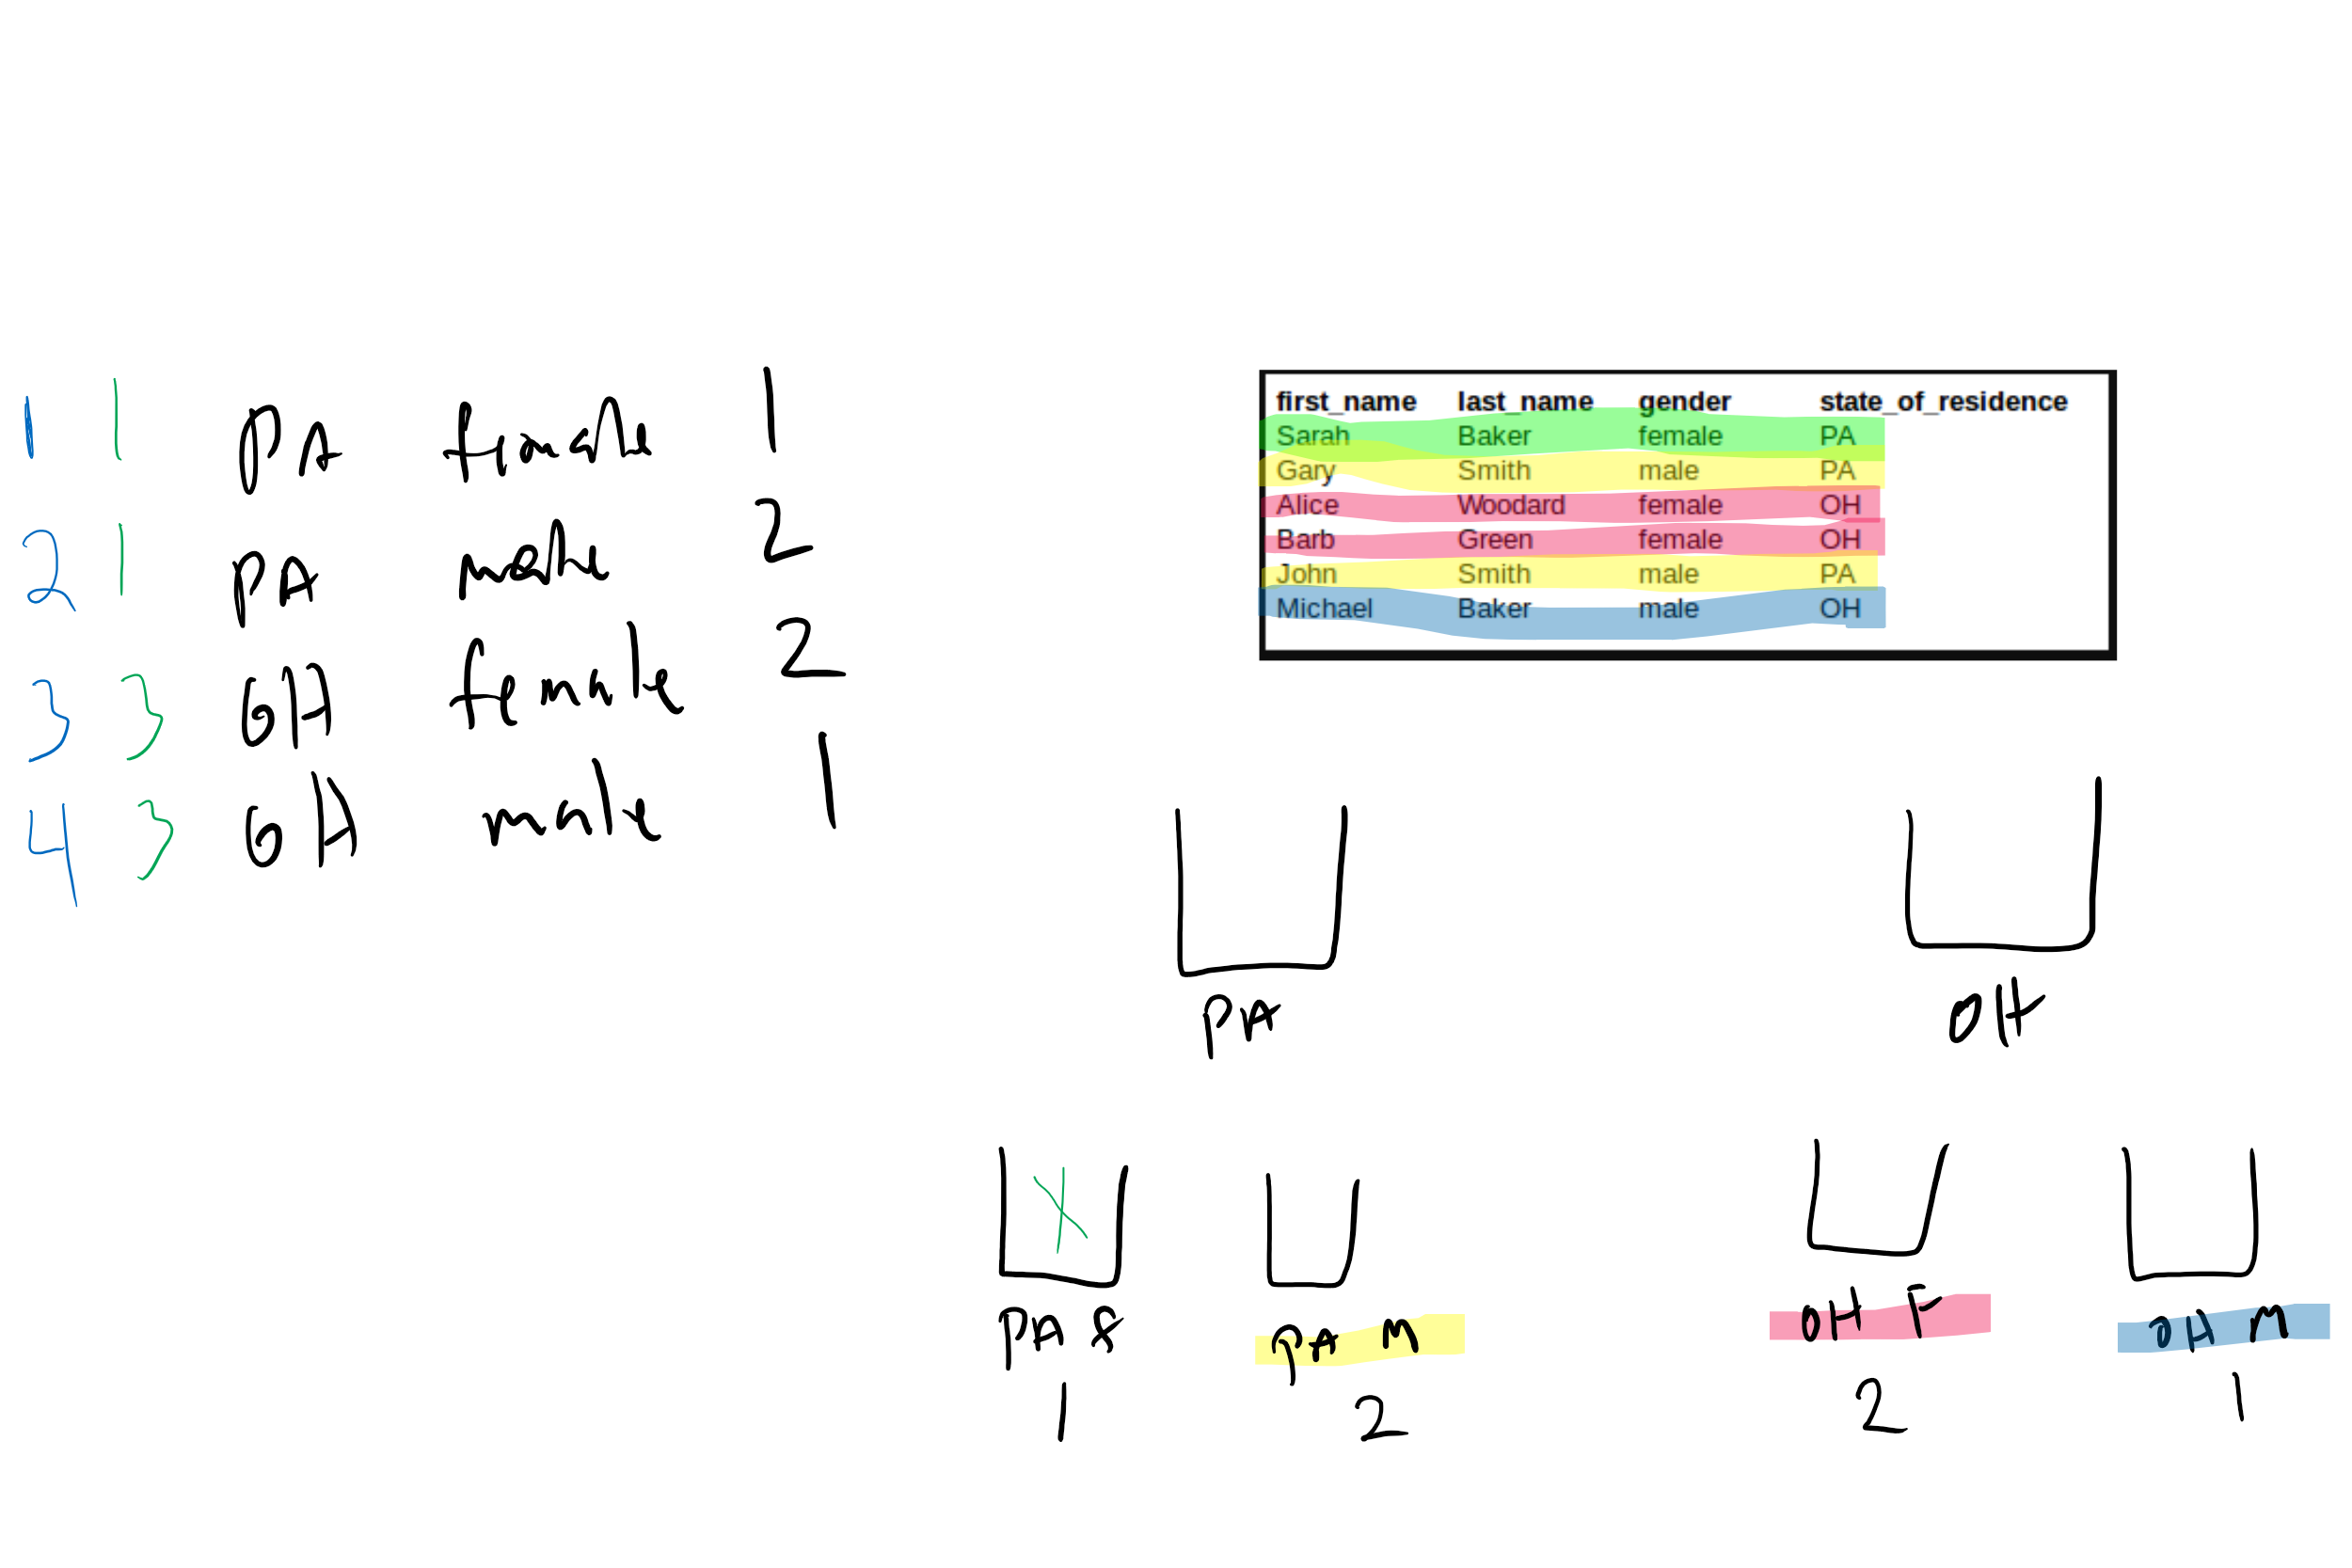 1 1 PA female 1
2 1 PA male 2
3 3 OH female 2
4 3 OH male 1
first_name last_name gender state_of_residence
Sarah Baker female PA
Gary Smith male PA
Alice Woodard female OH
Barb Green female OH
John Smith male PA
Michael Baker male OH
PA OH
X
PA F PA M OH F OH M
1 2 2 1